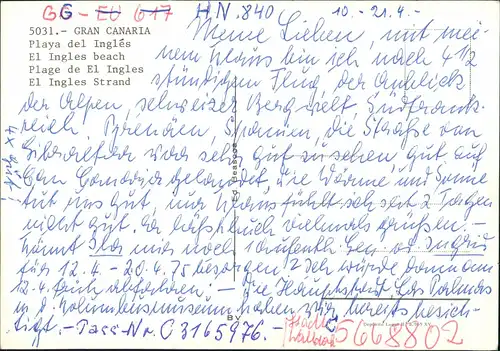 GG - EU 617 HN. 840 10.-21.4.-
5031.- GRAN CANARIA
Playa del Inglés
El Ingles beach
Plage de El Ingles
El Ingles Strand
Meine Lieben, mit mei-
nem Klaus bin ich nach 4 1/2
stündigem Flug, der Anblick
der Alpen, schweizer Bergwelt, Südfrank-
reich, Pyrenäen, Spanien, die Straße von
Gibraltar war sehr gut zu sehen, gut auf
Gran Canaria gelandet, die Wärme und Sonne
tut uns gut, nur Klaus fühlt sich seit 2 Tagen
nicht gut. Er läßt Euch vielmals grüßen. -
Könnt Ihr mir noch 1 Aufenth. od. Ingrid
für 12.4. - 20.4.75 besorgen? Ich würde dann am
12.4. früh abfahren! - Die Hauptstadt Las Palmas
u. d. Kolumbusmuseum haben wir bereits besich-
tigt. - Pass-Nr. C3165976. -
5668802